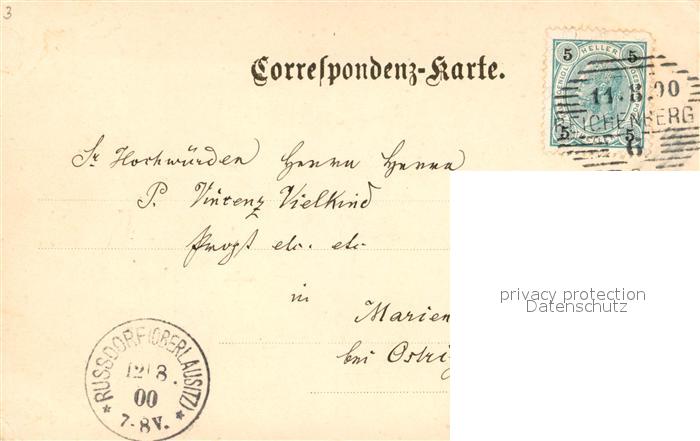 3
Correspondenz-Karte.
5 HELLER 5
11.8.00
REICHENBERG
5 5
6
Sr Hochwürden Herrn Herrn
P. Vincenz Vielkind
Propst etc. etc
in
Marien
bei Ostri
privacy protection
Datenschutz
* RUSSDORF (OBERLAUSITZ) *
12 8.
00
7-8V.